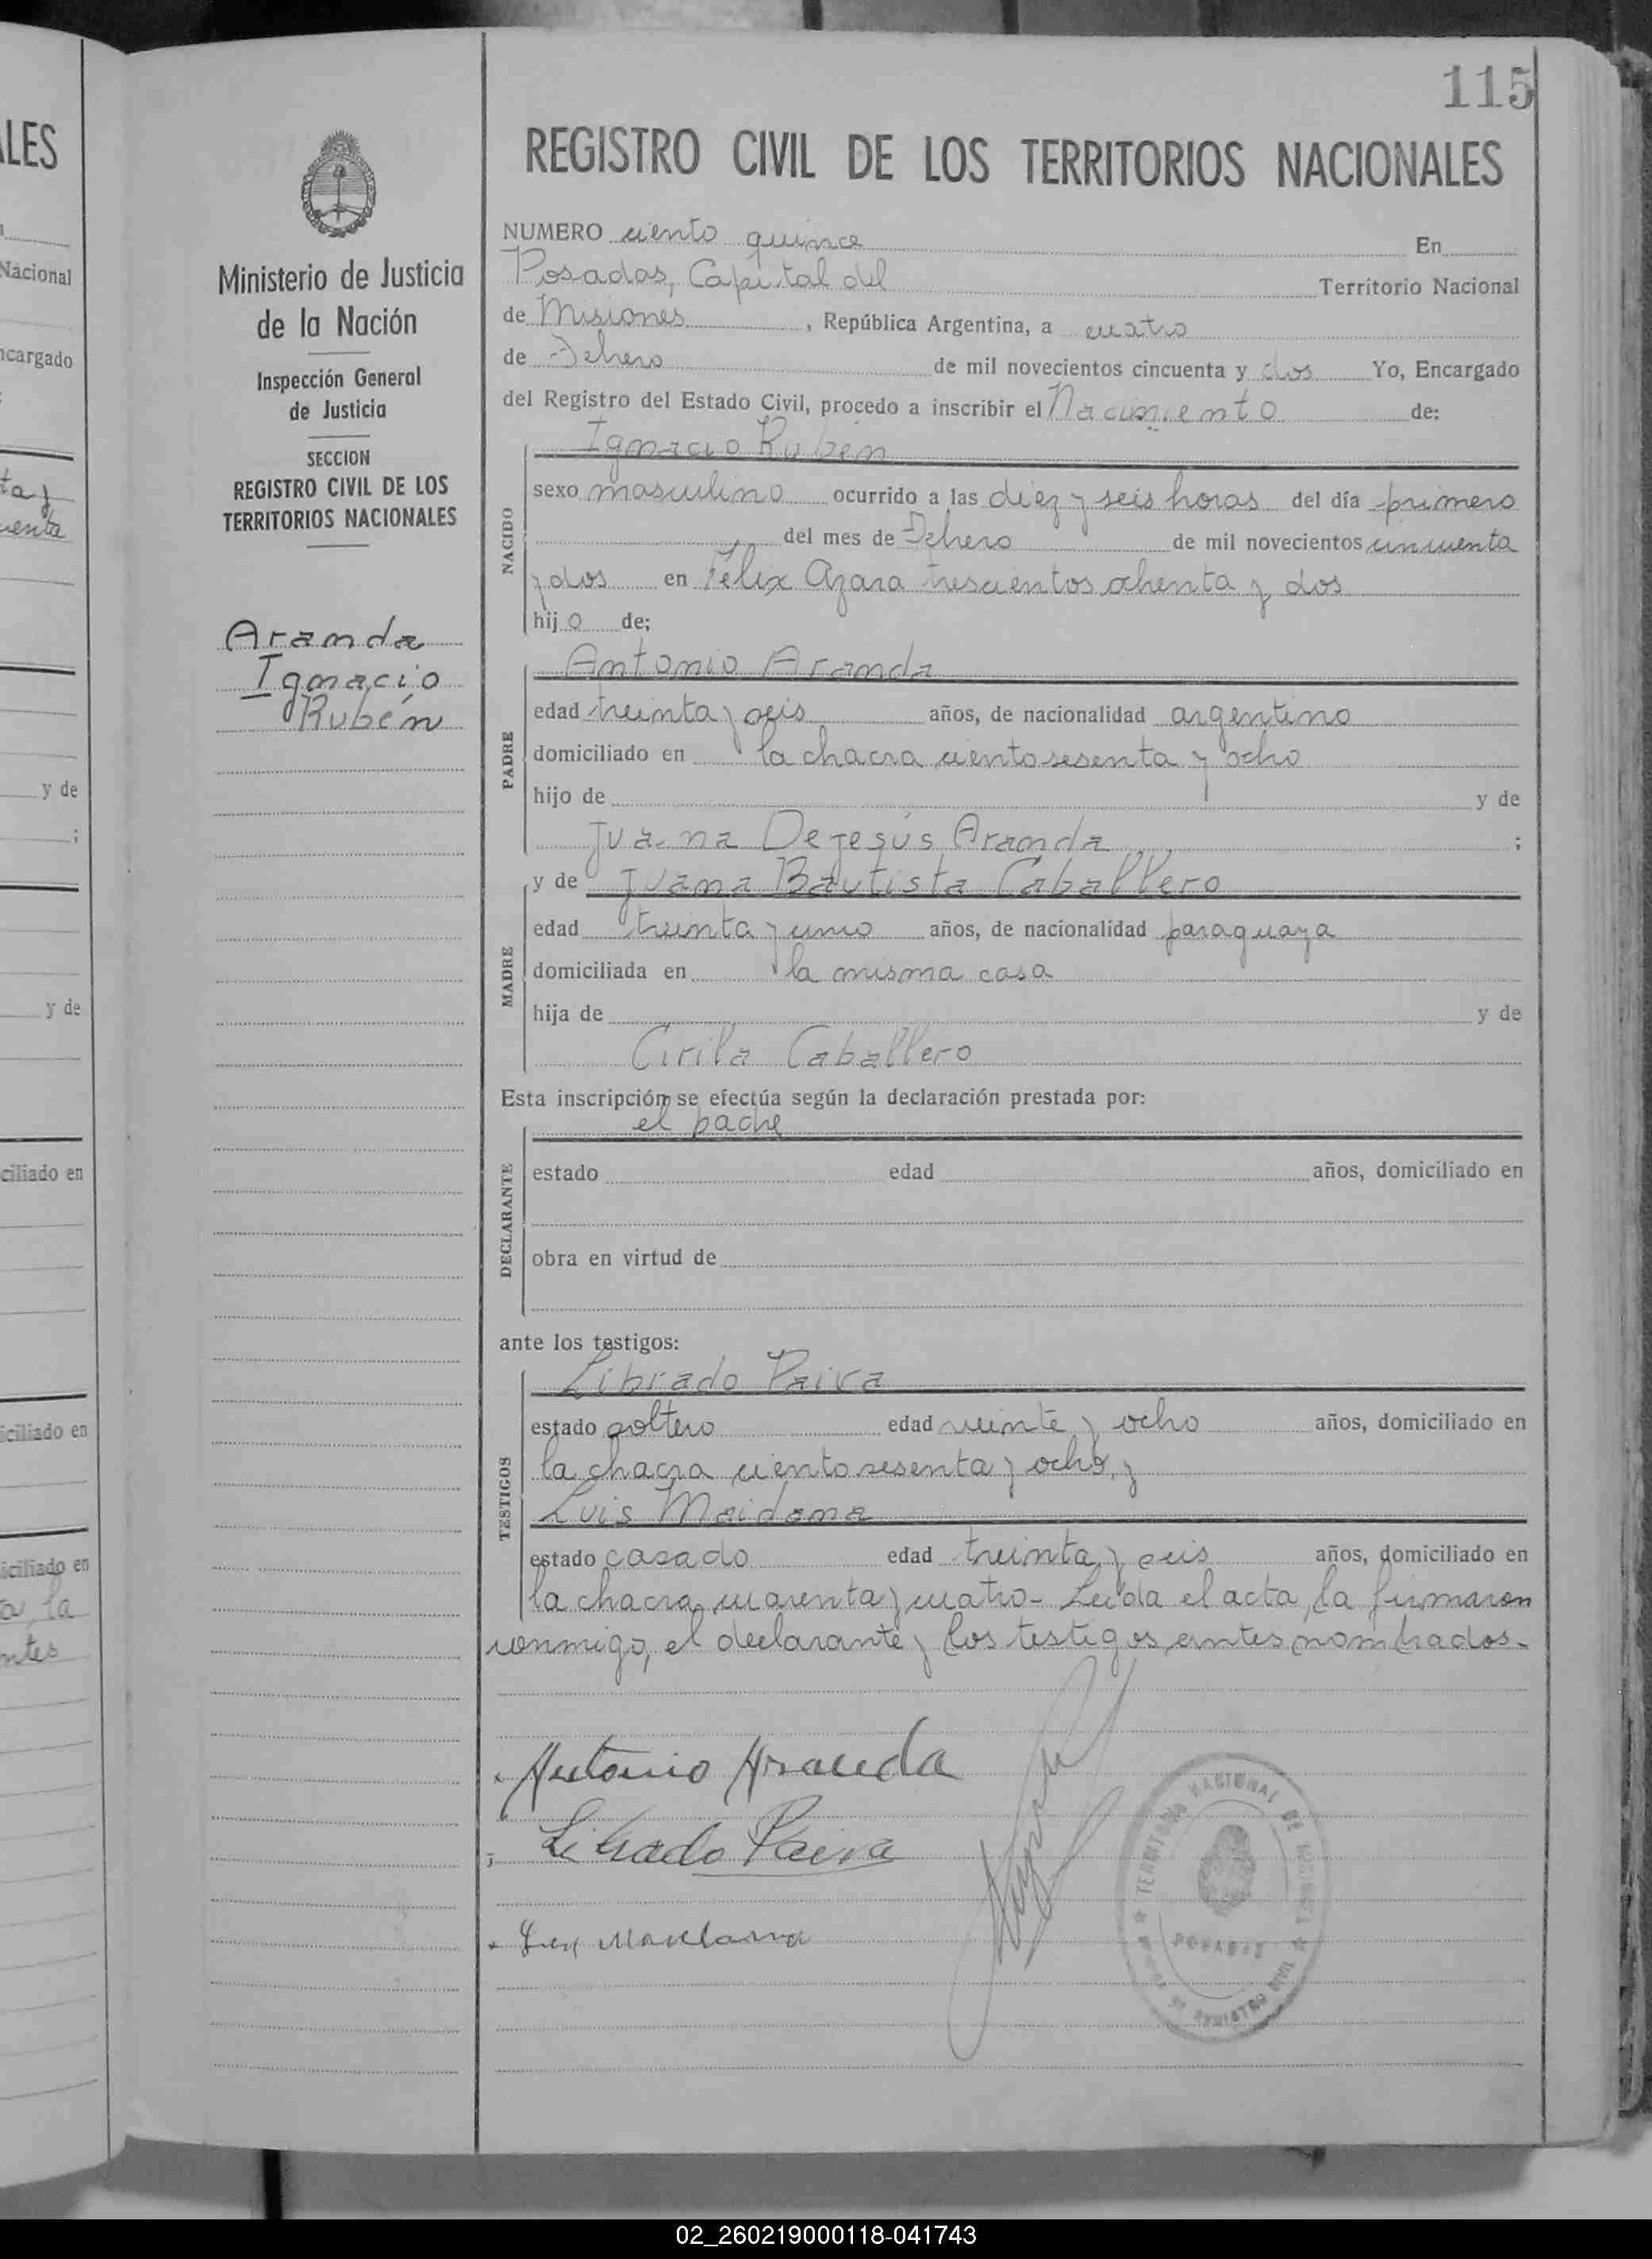 115
REGISTRO CIVIL DE LOS TERRITORIOS NACIONALES
Ministerio de Justicia
de la Nación
Inspección General
de Justicia
SECCION
REGISTRO CIVIL DE LOS
TERRITORIOS NACIONALES
Aranda
Ignacio
Rubén
NUMERO ciento quince En
Posadas, Capital del Territorio Nacional
de Misiones, República Argentina, a cuatro
de Febrero de mil novecientos cincuenta y dos Yo, Encargado
del Registro del Estado Civil, procedo a inscribir el Nacimiento de:
Ignacio Rubén
NACIDO
sexo masculino ocurrido a las diez y seis horas del día primero
del mes de Febrero de mil novecientos cincuenta
y dos en Félix Azara trescientos ochenta y dos
hijo de;
Antonio Aranda
PADRE
edad treinta y seis años, de nacionalidad argentino
domiciliado en la chacra ciento sesenta y ocho
hijo de y de
Juana De Jesús Aranda ;
y de Juana Bautista Caballero
MADRE
edad treinta y uno años, de nacionalidad paraguaya
domiciliada en la misma casa
hija de y de
Cirila Caballero
Esta inscripción se efectúa según la declaración prestada por:
el padre
DECLARANTE
estado edad años, domiciliado en
obra en virtud de
ante los testigos:
Librado Paiva
TESTIGOS
estado soltero edad veinte y ocho años, domiciliado en
la chacra ciento sesenta y ocho, y
Luis Maidana
estado casado edad treinta y seis años, domiciliado en
la chacra cuarenta y cuatro - Leída el acta, la firmaron
conmigo, el declarante y los testigos antes nombrados -
Antonio Aranda
Librado Paiva
TERRITORIO NACIONAL DE MISIONES
POSADAS
REGISTRO CIVIL
LES
Nacional
ncargado
ta y
uenta
y de
;
y de
ciliado en
iciliado en
iciliado en
a la
ntes
02_260219000118-041743